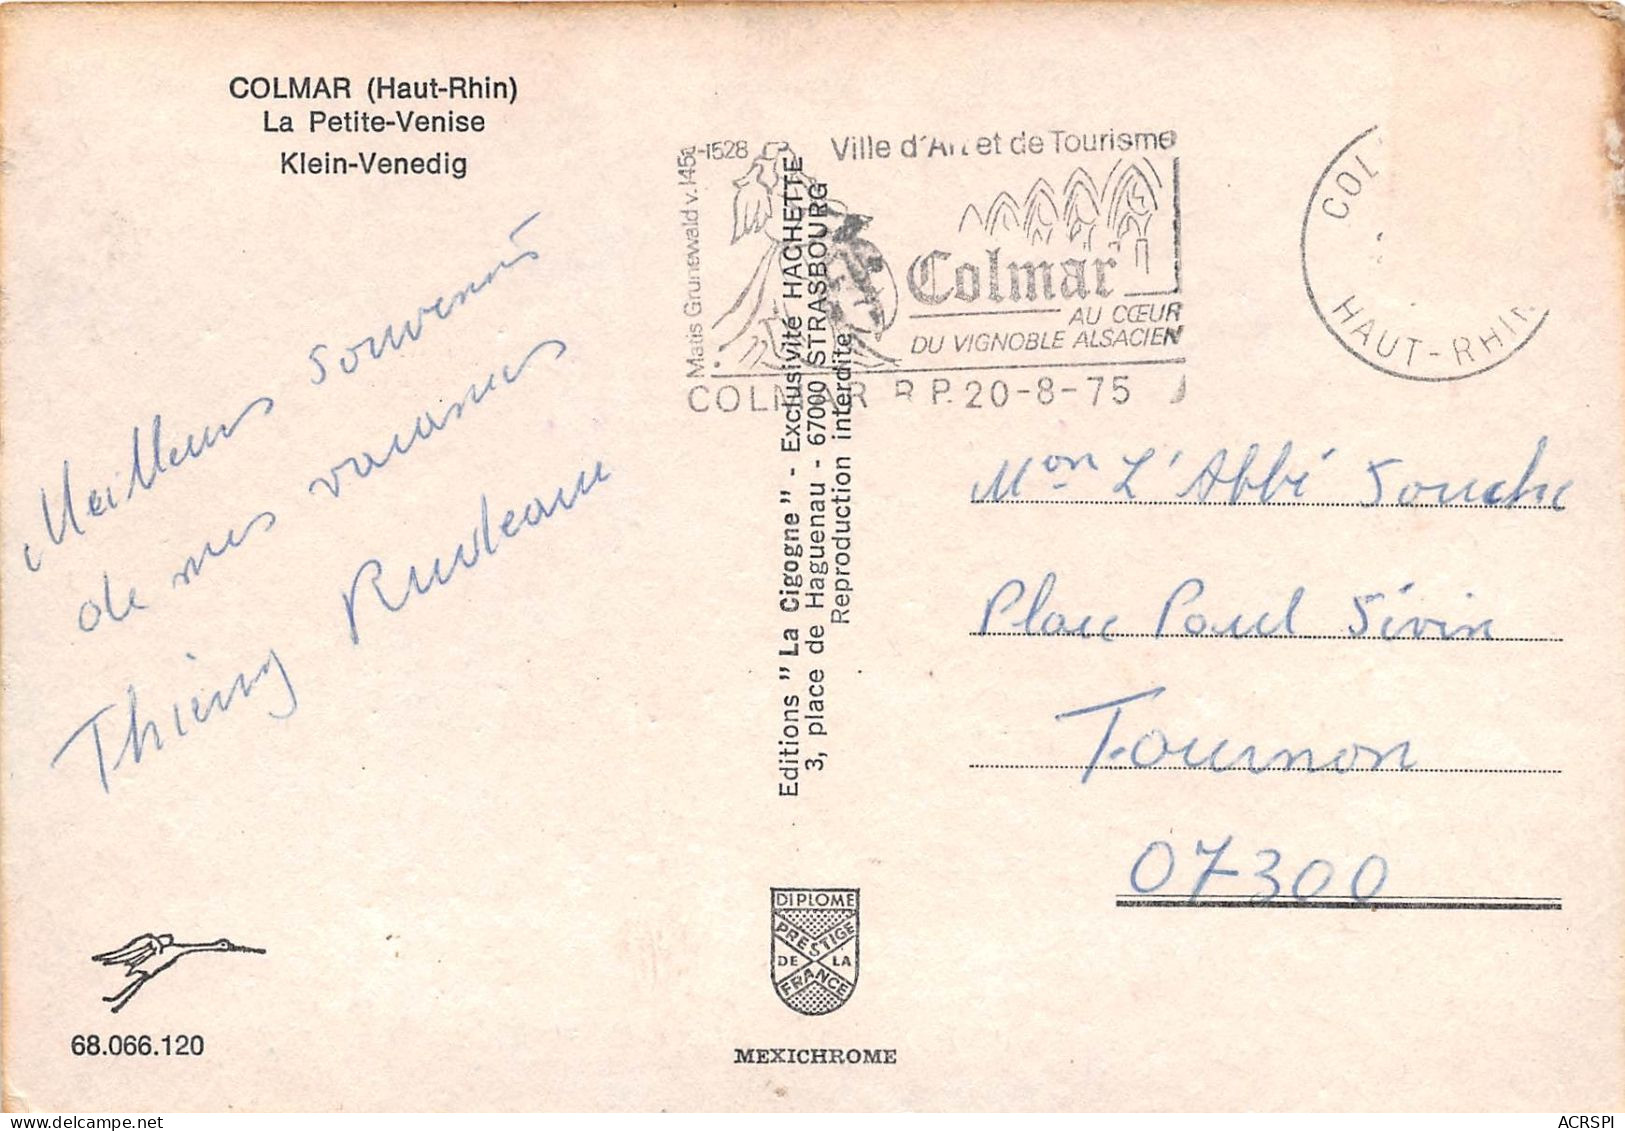 COLMAR (Haut-Rhin)
La Petite-Venise
Klein-Venedig
Meilleurs souvenirs
de mes vacances
Thierry
Matis Grunewald v.145?-1528
Ville d'Art et de Tourisme
Colmar
AU CŒUR
DU VIGNOBLE ALSACIEN
COLMAR R.P. 20-8-75
COL
HAUT-RHIN
Editions "La Cigogne" - Exclusivité HACHETTE
3, place de Haguenau - 67000 STRASBOURG
Reproduction interdite
Mon L'Abbé Souche
Place Paul Sévin
Tournon
07300
DIPLOME
PRESTIGE
DE LA
FRANCE
68.066.120
MEXICHROME
ACRSPI